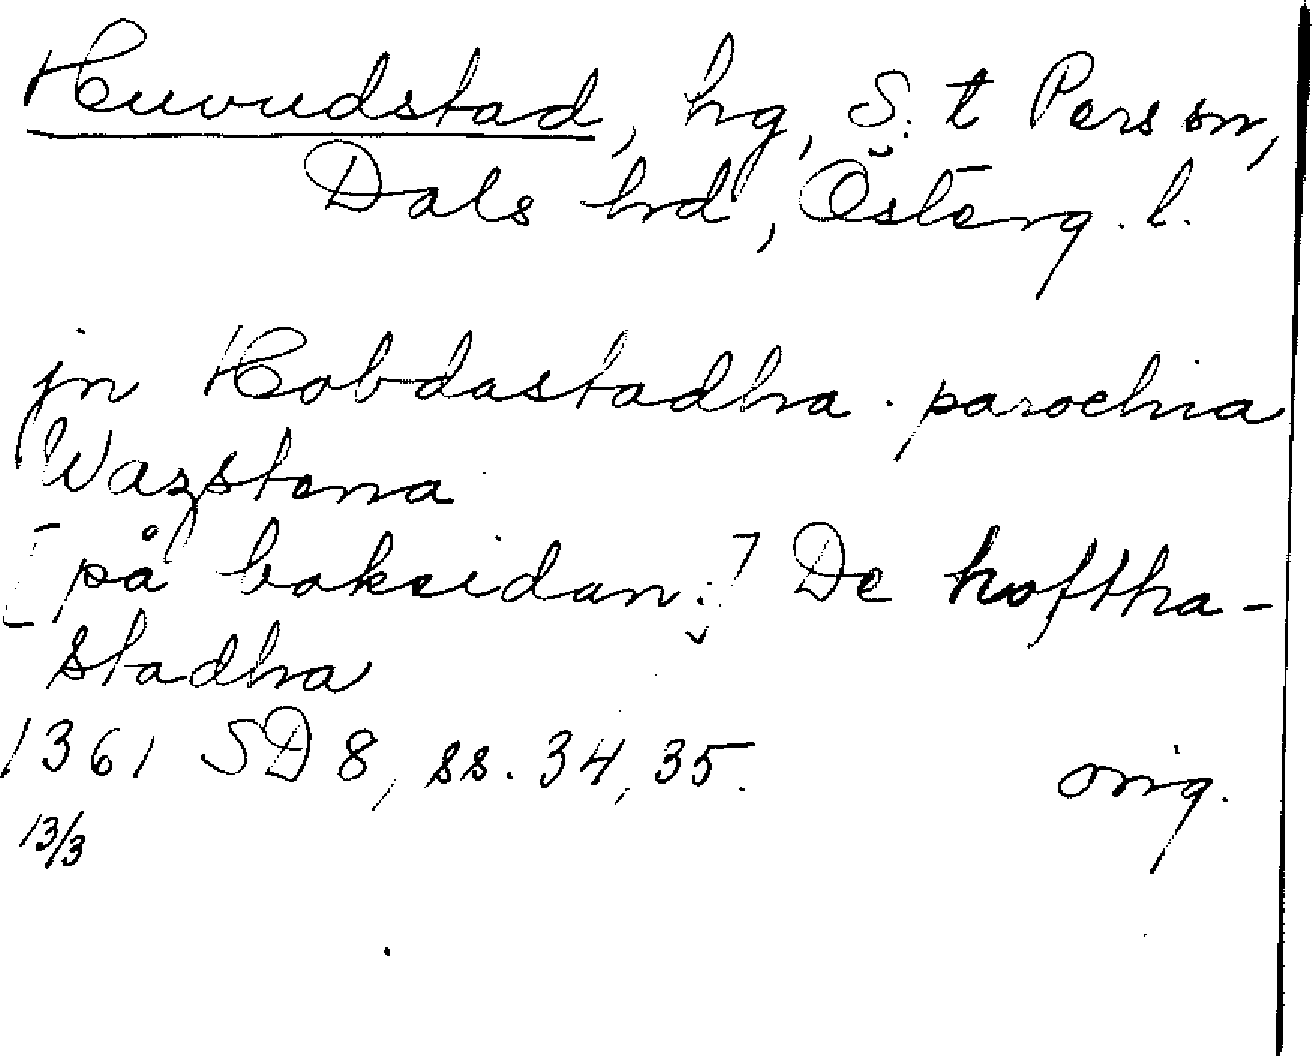 Huvudstad, hg, S:t Pers sn,
Dals hd, Österg. l.
jn Hobdastadha . parochia
Wazstena
[på baksidan:] De hoftha-
stadha
1361 SD 8, ss. 34, 35. orig.
13/3